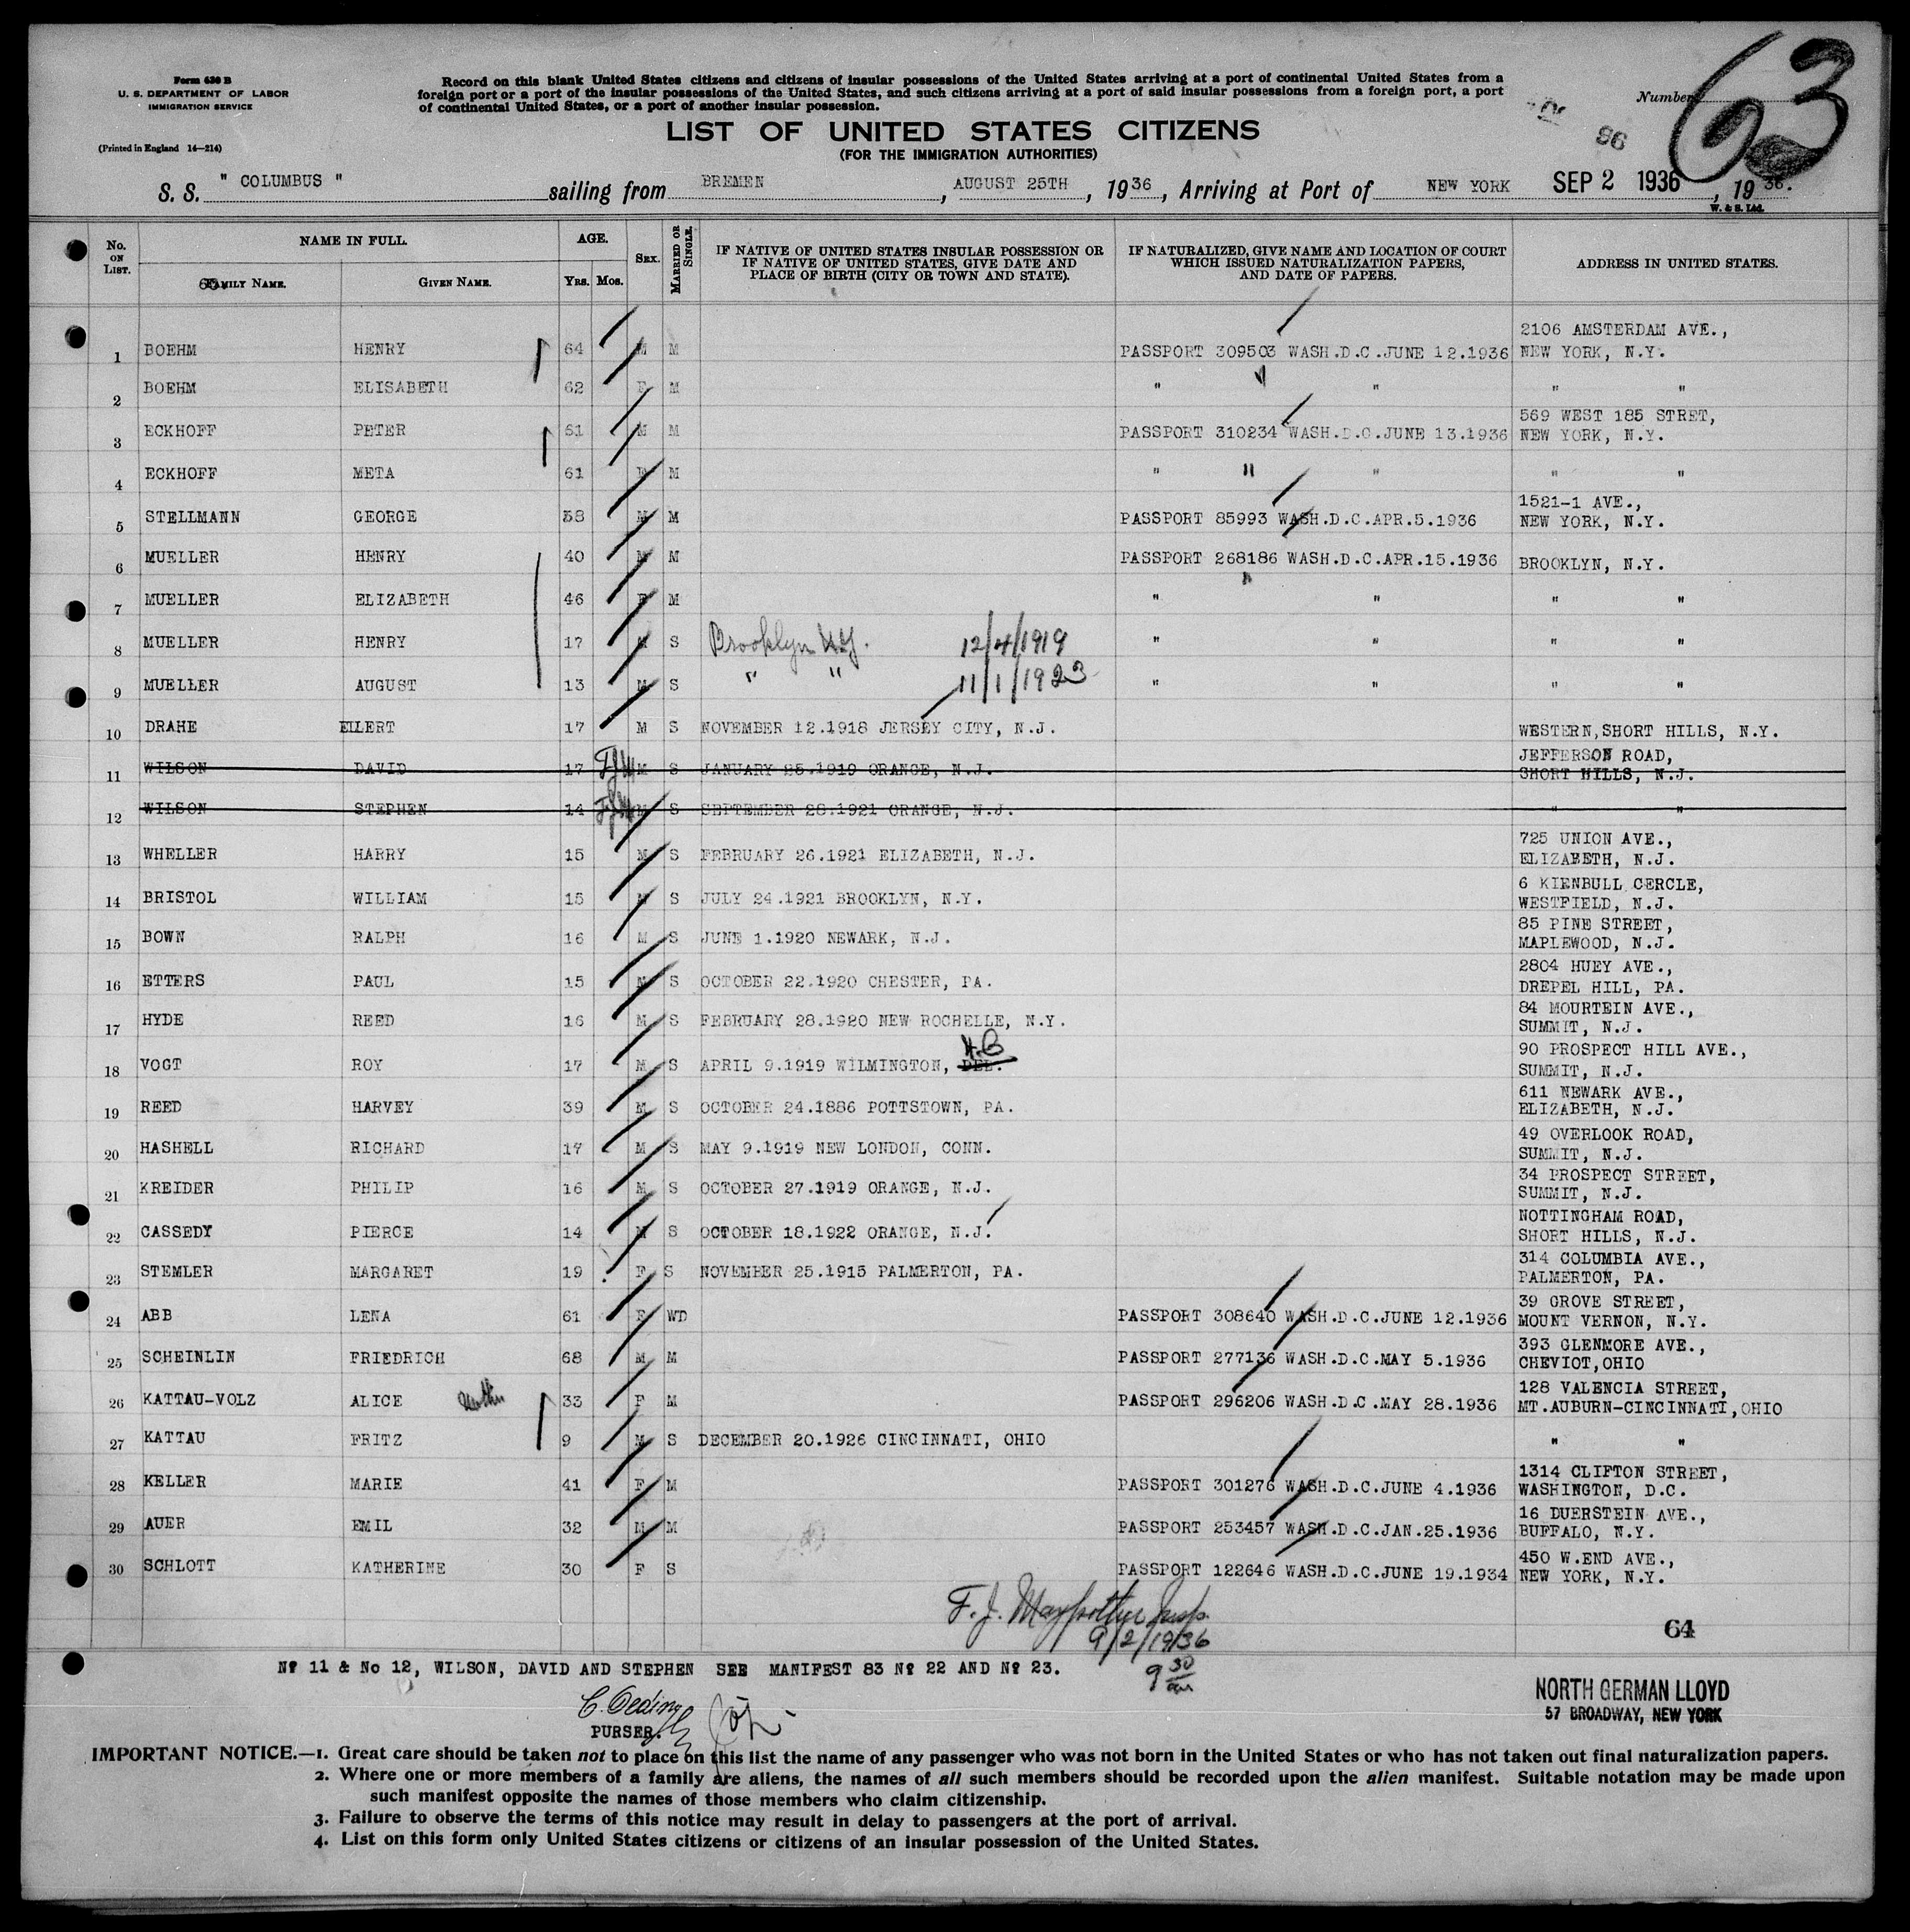 Form 630 B
U. S. DEPARTMENT OF LABOR
IMMIGRATION SERVICE
(Printed in England 14—214)
Record on this blank United States citizens and citizens of insular possessions of the United States arriving at a port of continental United States from a
foreign port or a port of the insular possessions of the United States, and such citizens arriving at a port of said insular possessions from a foreign port, a port
of continental United States, or a port of another insular possession.
Number 63
86
LIST OF UNITED STATES CITIZENS
(FOR THE IMMIGRATION AUTHORITIES)
S. S. " COLUMBUS " sailing from BREMEN, AUGUST 25TH, 1936, Arriving at Port of NEW YORK SEP 2 1936, 1936.
W. & S. Ltd.
No. ON LIST. NAME IN FULL. AGE. SEX. MARRIED OR SINGLE. IF NATIVE OF UNITED STATES INSULAR POSSESSION OR IF NATIVE OF UNITED STATES, GIVE DATE AND PLACE OF BIRTH (CITY OR TOWN AND STATE). IF NATURALIZED, GIVE NAME AND LOCATION OF COURT WHICH ISSUED NATURALIZATION PAPERS, AND DATE OF PAPERS. ADDRESS IN UNITED STATES.
FAMILY NAME. GIVEN NAME. YRS. MOS.
1 BOEHM HENRY 64 M M PASSPORT 309503 WASH.D.C.JUNE 12.1936 2106 AMSTERDAM AVE., NEW YORK, N.Y.
2 BOEHM ELISABETH 62 F M " " " "
3 ECKHOFF PETER 61 M M PASSPORT 310234 WASH.D.C.JUNE 13.1936 569 WEST 185 STRET, NEW YORK, N.Y.
4 ECKHOFF META 61 F M " " " " "
5 STELLMANN GEORGE 38 M M PASSPORT 85993 WASH.D.C.APR.5.1936 1521-1 AVE., NEW YORK, N.Y.
6 MUELLER HENRY 40 M M PASSPORT 268186 WASH.D.C.APR.15.1936 BROOKLYN, N.Y.
7 MUELLER ELIZABETH 46 F M " " " " "
8 MUELLER HENRY 17 M S Brooklyn N.Y. 12/4/1919 " " " "
9 MUELLER AUGUST 13 M S " " 11/1/1923 " " " "
10 DRAHE EILERT 17 M S NOVEMBER 12.1918 JERSEY CITY, N.J. WESTERN,SHORT HILLS, N.Y.
11 WILSON DAVID 17 M S JANUARY 25.1919 ORANGE, N.J. JEFFERSON ROAD, SHORT HILLS, N.J.
12 WILSON STEPHEN 14 M S SEPTEMBER 28.1921 ORANGE, N.J. " "
13 WHELLER HARRY 15 M S FEBRUARY 26.1921 ELIZABETH, N.J. 725 UNION AVE., ELIZABETH, N.J.
14 BRISTOL WILLIAM 15 M S JULY 24.1921 BROOKLYN, N.Y. 6 KIENBULL CERCLE, WESTFIELD, N.J.
15 BOWN RALPH 16 M S JUNE 1.1920 NEWARK, N.J. 85 PINE STREET, MAPLEWOOD, N.J.
16 ETTERS PAUL 15 M S OCTOBER 22.1920 CHESTER, PA. 2804 HUEY AVE., DREPEL HILL, PA.
17 HYDE REED 16 M S FEBRUARY 28.1920 NEW ROCHELLE, N.Y. 84 MOURTEIN AVE., SUMMIT, N.J.
18 VOGT ROY 17 M S APRIL 9.1919 WILMINGTON, DEL. 90 PROSPECT HILL AVE., SUMMIT, N.J.
19 REED HARVEY 39 M S OCTOBER 24.1886 POTTSTOWN, PA. 611 NEWARK AVE., ELIZABETH, N.J.
20 HASHELL RICHARD 17 M S MAY 9.1919 NEW LONDON, CONN. 49 OVERLOOK ROAD, SUMMIT, N.J.
21 KREIDER PHILIP 16 M S OCTOBER 27.1919 ORANGE, N.J. 34 PROSPECT STREET, SUMMIT, N.J.
22 CASSEDY PIERCE 14 M S OCTOBER 18.1922 ORANGE, N.J. NOTTINGHAM ROAD, SHORT HILLS, N.J.
23 STEMLER MARGARET 19 F S NOVEMBER 25.1915 PALMERTON, PA. 314 COLUMBIA AVE., PALMERTON, PA.
24 ABB LENA 61 F WD PASSPORT 308640 WASH.D.C.JUNE 12.1936 39 GROVE STREET, MOUNT VERNON, N.Y.
25 SCHEINLIN FRIEDRICH 68 M M PASSPORT 277136 WASH.D.C.MAY 5.1936 393 GLENMORE AVE., CHEVIOT,OHIO
26 KATTAU-VOLZ ALICE Mother 33 F M PASSPORT 296206 WASH.D.C.MAY 28.1936 128 VALENCIA STREET, MT.AUBURN-CINCINNATI,OHIO
27 KATTAU FRITZ 9 M S DECEMBER 20.1926 CINCINNATI, OHIO " "
28 KELLER MARIE 41 F M PASSPORT 301276 WASH.D.C.JUNE 4.1936 1314 CLIFTON STREET, WASHINGTON, D.C.
29 AUER EMIL 32 M M PASSPORT 253457 WASH.D.C.JAN.25.1936 16 DUERSTEIN AVE., BUFFALO, N.Y.
30 SCHLOTT KATHERINE 30 F S PASSPORT 122646 WASH.D.C.JUNE 19.1934 450 W.END AVE., NEW YORK, N.Y.
F. J. Insp.
9/2/1936
64
9 30 am
Nº 11 & No 12, WILSON, DAVID AND STEPHEN SEE MANIFEST 83 Nº 22 AND Nº 23.
C. Oeding
PURSER.
NORTH GERMAN LLOYD
57 BROADWAY, NEW YORK
IMPORTANT NOTICE.—1. Great care should be taken not to place on this list the name of any passenger who was not born in the United States or who has not taken out final naturalization papers.
2. Where one or more members of a family are aliens, the names of all such members should be recorded upon the alien manifest. Suitable notation may be made upon
such manifest opposite the names of those members who claim citizenship.
3. Failure to observe the terms of this notice may result in delay to passengers at the port of arrival.
4. List on this form only United States citizens or citizens of an insular possession of the United States.